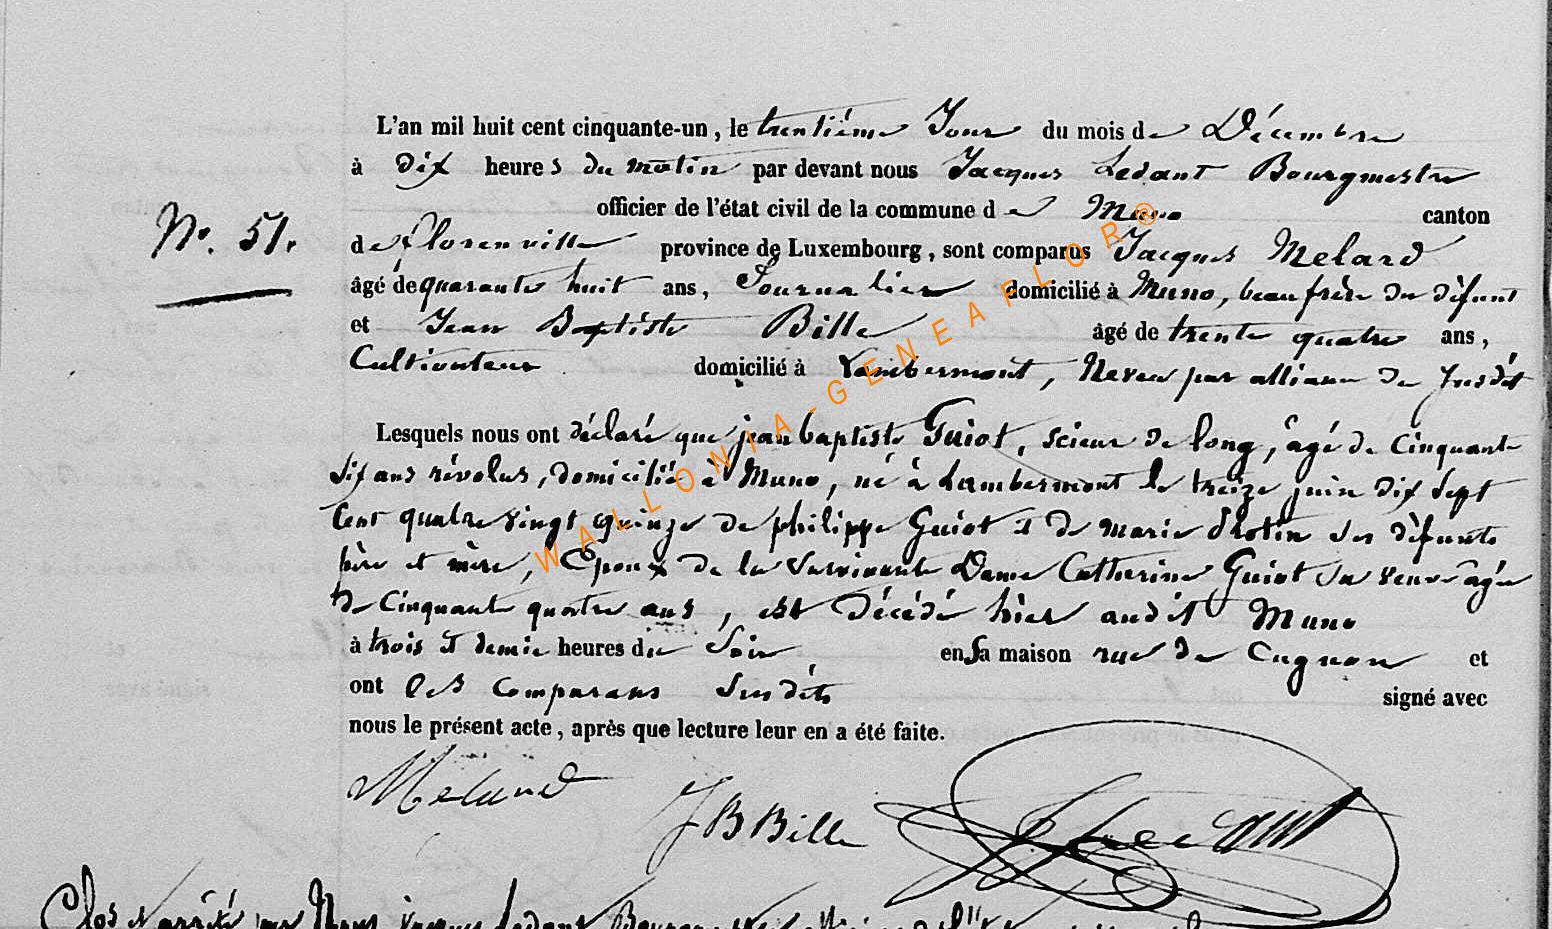 L'an mil huit cent cinquante-un, le trentième Jour du mois de Décembre
à dix heures du matin par devant nous Jacques Ledant Bourgmestre
officier de l'état civil de la commune de Muno canton
No. 51.
de florenville province de Luxembourg, sont comparus Jacques Melard
âgé de quarante huit ans, Journalier domicilié à Muno, beau frère du défunt
et Jean Baptiste Bille âgé de trente quatre ans,
Cultivateur domicilié à Lambermont, Neveu par alliance du susdit
Lesquels nous ont déclaré que jean baptiste Guiot, scieur de long, âgé de Cinquante
six ans révolus, domicilié à Muno, né à Lambermont le treize juin dix sept
Cent quatre vingt quinze de philippe Guiot et de marie des défunts
père et mère, Epoux de la survivante Dame Catherine Guiot sa veuve âgée
de Cinquante quatre ans, est décédé hier audit Muno
à trois et demie heures du Soir en sa maison rue de Cugnon et
ont les Comparans Susdits signé avec
nous le présent acte, après que lecture leur en a été faite.
Melard
JB Bille
Ledant
Clos et arrêté par Nous Jacques Ledant Bourgmestre officier de l'état
WALLONIA-GENEAFLOR®